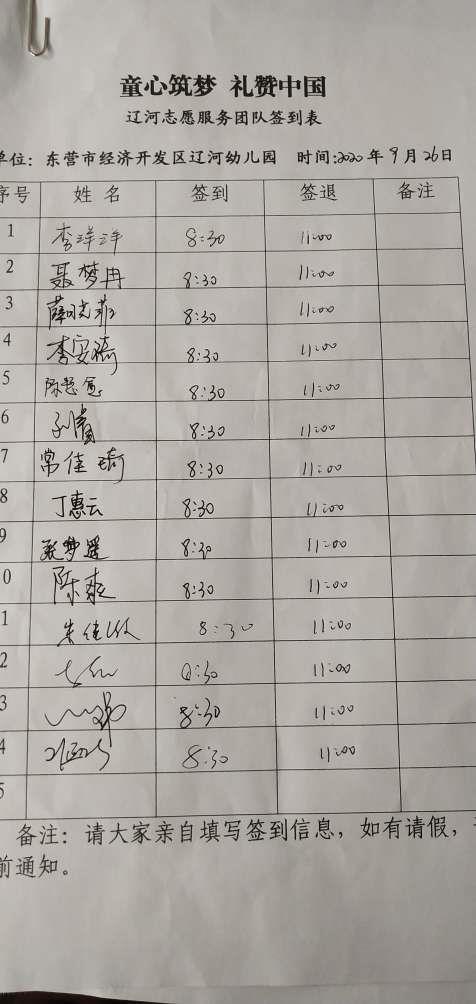 童心筑梦 礼赞中国
辽河志愿服务团队签到表
单位：东营市经济开发区辽河幼儿园 时间:2020年9月26日
序号 姓名 签到 签退 备注
1 李洋洋 8:30 11:00
2 聂梦冉 8:30 11:00
3 薛晓菲 8:30 11:00
4 李安琦 8:30 11:00
5 8:30 11:00
6 8:30 11:00
7 常佳琦 8:30 11:00
8 丁惠云 8:30 11:00
9 8:30 11:00
0 陈爽 8:30 11:00
1 朱佳 8:30 11:00
2 8:30 11:00
3 8:30 11:00
4 8:30 11:00
5
备注：请大家亲自填写签到信息，如有请假，
前通知。